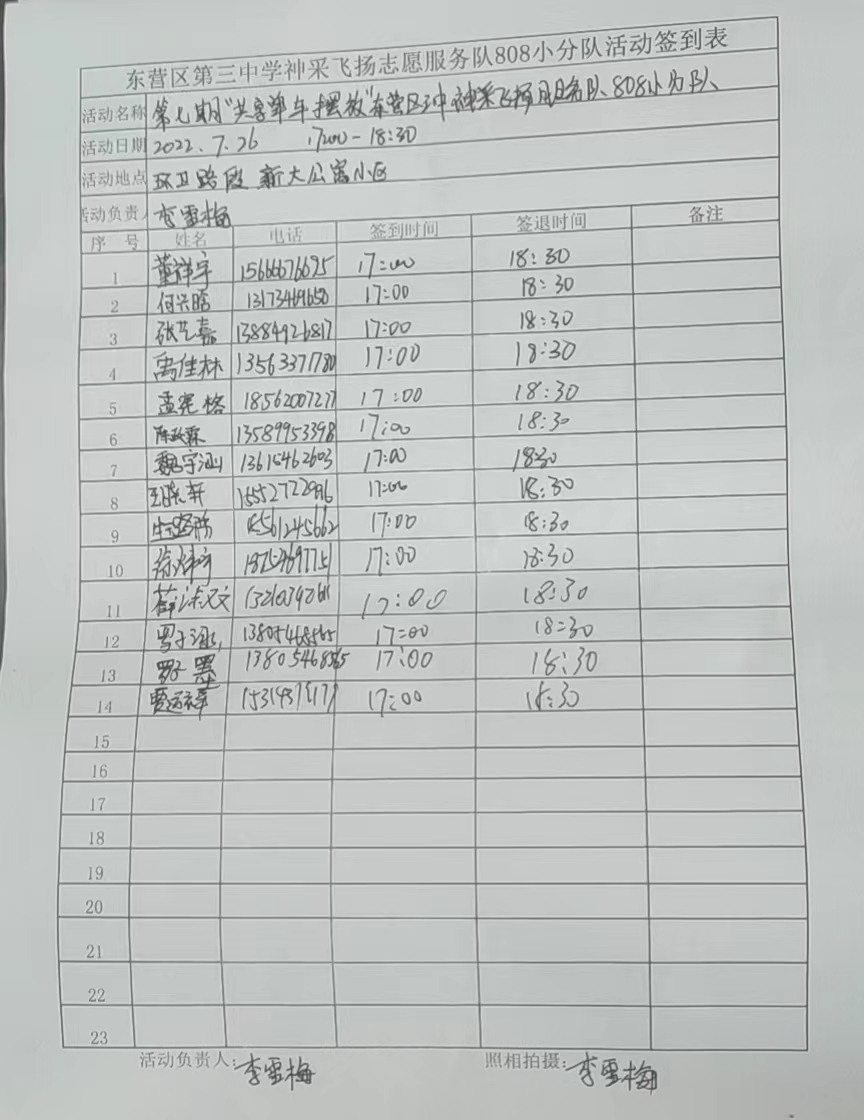 东营区第三中学神采飞扬志愿服务队808小分队活动签到表
活动名称 第七期"共享单车摆放"东营区三中神采飞扬服务队808小分队
活动日期 2022.7.26 17:00-18:30
活动地点 环卫路段 新大公寓小区
活动负责人 李雪梅
序号 姓名 电话 签到时间 签退时间 备注
1 董祥宇 15666676695 17:00 18:30
2 何兴晗 17:00 18:30
3 张艺嘉 13884926817 17:00 18:30
4 禹佳林 13563371780 17:00 18:30
5 孟宪格 18562007277 17:00 18:30
6 13589953398 17:00 18:30
7 魏宇涵 13615462603 17:00 18:30
8 17:00 18:30
9 17:00 18:30
10 17:00 18:30
11 17:00 18:30
12 13805468565 17:00 18:30
13 13805468565 17:00 18:30
14 17:00 18:30
15
16
17
18
19
20
21
22
23
活动负责人:李雪梅 照相拍摄:李雪梅